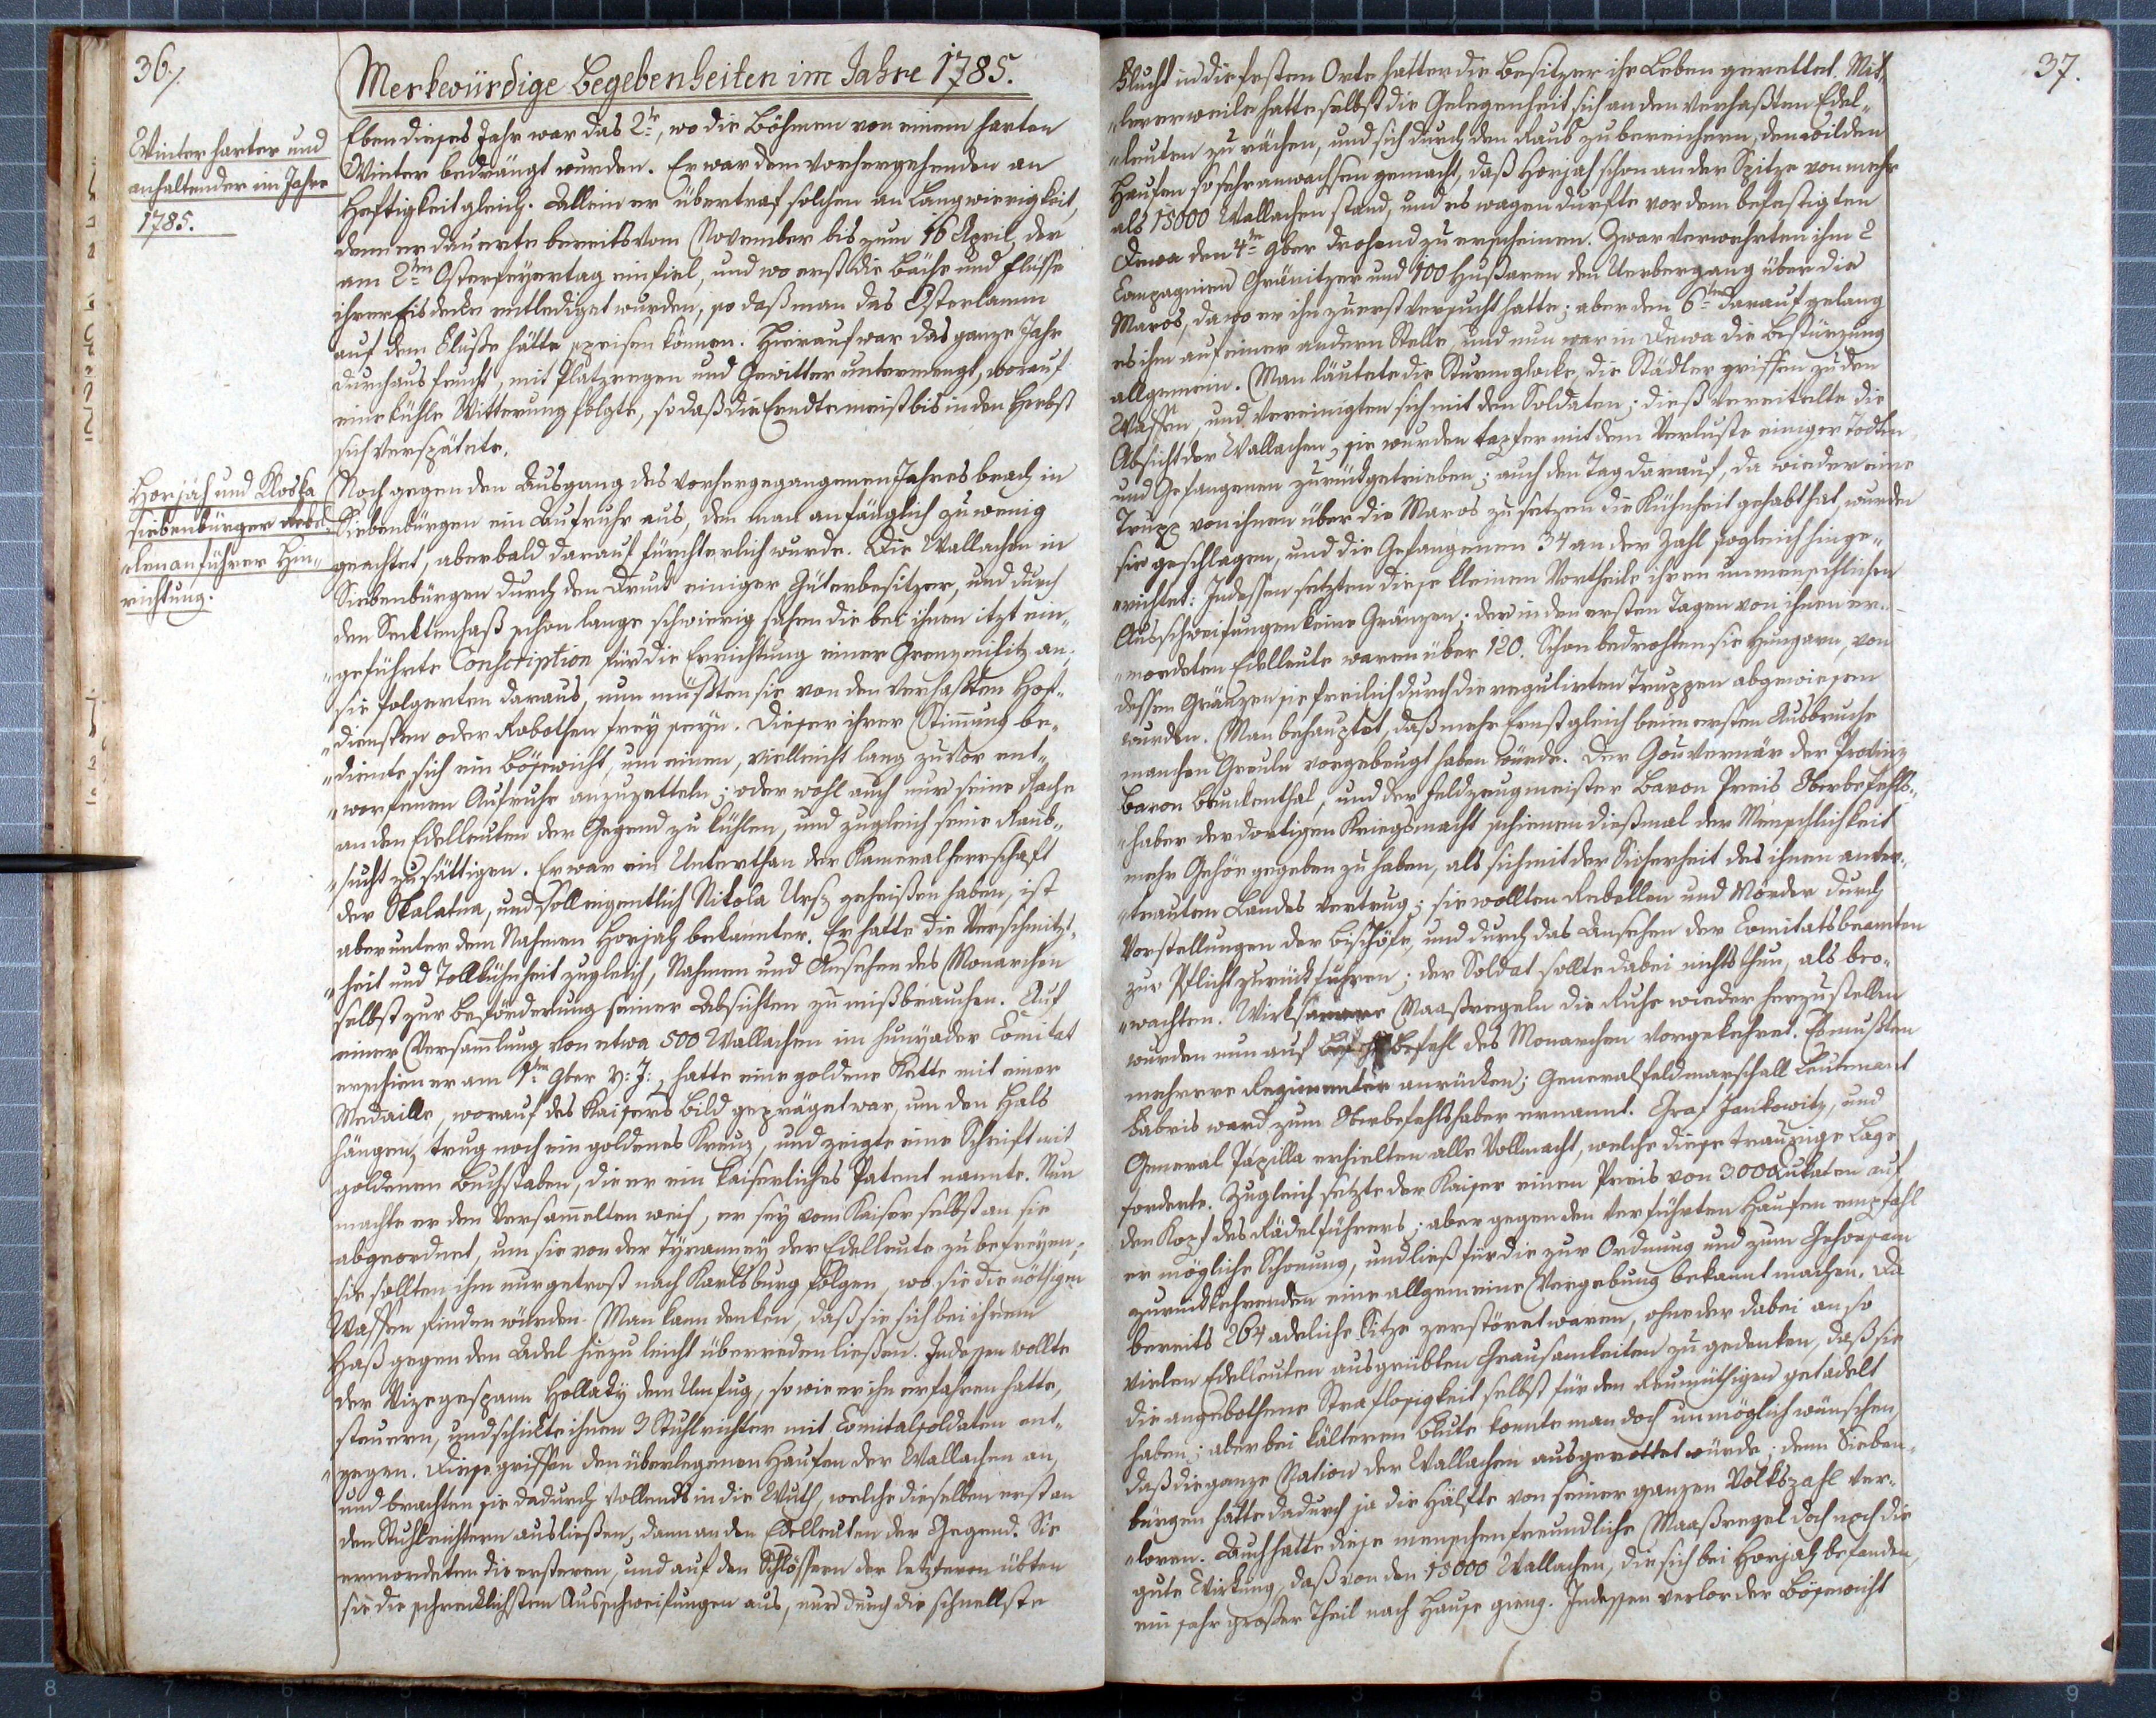 36./.
Merkwürdige Begebenheiten im Jahre 1785.
Winter harter und
anhaltender im Jahre
1785.
Eben dieses Jahr war das 2te, wo die Böhmen von einem harten
Winter bedrängt wurden. Er war dem vorhergehenden an
Heftigkeit gleich. Allein er übertraf solchen an Langwierigkeit,
denn er dauerte bereits vom November bis zum 16 April, der
am 2ten Osterfeyertag einfiel, und wo erst die Bäche und Flüsse
ihrer Eisdecke entlediget wurden, so daß man das Osterlamm
auf dem Fluße hätte speisen können. Hierauf war das ganze Jahr
durchaus feucht, mit Platzregen und Gewitter untermengt, worauf
eine kühle Witterung folgte, so daß die Erndte meist bis in den Herbst
sich verspätete.
Horjah und Kloska
siebenbürger Rebel
"lenanführer Hin"
richtung.
Noch gegen den Ausgang des vorhergegangenen Jahres brach in
Siebenbürgen ein Aufruhr aus, den man anfänglich zu wenig
geachtet, aber bald darauf fürchterlich wurde. Die Wallachen in
Siebenbürgen durch den Druck einiger Güterbesitzer, und durch
den Secktenhaß schon lange schwierig sahen die bei ihnen itzt ein"
"geführte Conscription für die Errichtung einer Grenzmilitz an;
sie folgerten daraus, nun müßten sie von den verhaßten Hof"
"diensten oder Robothen frey seyn. Dieser ihrer Stimmung be"
"diente sich ein Bösewicht, um einen, vielleicht lang zuvor ent"
"worfenen Aufruhr anzuzetteln; oder wohl auch nur seine Rache
an den Edelleuten der Gegend zu kühlen, und zugleich seine Raub"
"sucht zu sättigen. Er war ein Unterthan der Kameralherrschaft
der Skalatna, und soll eigentlich Nikola Urs geheißen haben, ist
aber unter dem Nahmen Horjah bekannter. Er hatte die Verschmitzt"
"heit und Tollkühnheit zugleich, Nahmen und Ansehen des Monarchen
selbst zur Beförderung seiner Absichten zu mißbrauchen. Auf
einer Versammlung von etwa 500 Wallachen im hunyader Comitat
erschien er am 1ten 9ber v: J:, hatte eine goldene Kette mit einer
Medaille, worauf des Kaisers Bild gepräget war, um den Hals
hängen, trug noch ein goldenes Kreuz, und zeigte eine Schrift mit
goldenen Buchstaben, die er ein kaiserliches Patent nannte. Nun
machte er den Versammelten weis, er sey vom Kaiser selbst an sie
abgeordnet, um sie von der Tyranney der Edelleute zu befreyen;
sie sollten ihm nur getrost nach Karlsburg folgen, wo sie die nöthigen
Waffen finden würden. Man kann denken, daß sie sich bei ihrem
Haß gegen den Adel hiezu leicht überreden ließen. Indessen wollte
der Vizegespann Hollaky dem Unfug, so wie er ihn erfahren hatte,
steuern, und schickte ihnen 3 Stuhlrichter mit Comitatsoldaten ent"
"gegen. Diese griffen den überlegenen Haufen der Wallachen an,
und brachten sie dadurch vollends in die Wuth, welche dieselben erst an
den Stuhlrichtern ausließen, dann an den Edelleuten der Gegend. Sie
ermordeten die ersteren, und auf den Schlössern der letzteren übten
sie die schrecklichsten Ausschweifungen aus, nur durch die schnellste
37.
Flucht in die festen Orte hatten die Besitzer ihr Leben gerettet. Mit"
"lererweile hatte selbst die Gelegenheit sich an den verhaßten Edel"
"leuten zu rächen, und sich durch den Raub zu bereichern, den wilden
Haufen so sehr anwachsen gemacht, daß Horjah schon an der Spitze von mehr
als 15000 Wallachen stand, und es wagen durfte vor dem befestigten
Dewa den 4ten 9ber drohend zu erscheinen. Zwar verwehrten ihm 2
Compagnien Gränitzer und 100 Hußaren den Uebergang über die
Maros, da wo er ihn zuerst versucht hatte; aber den 6ten darauf gelang
es ihm auf einer andern Stelle, und nun war in Dewa die Bestürzung
allgemein. Man läutete die Sturmglocke, die Städler griffen zu den
Waffen, und vereinigten sich mit den Soldaten; dieß vereitelte die
Absicht der Wallachen, sie wurden tapfer mit dem Verluste einiger Todten
und Gefangenen zurückgetrieben; auch den Tag darauf, da wieder eine
Trupp von ihnen über die Maros zu setzen die Kühnheit gehabt hat, wurden
sie geschlagen, und die Gefangenen 34 an der Zahl sogleich hinge"
"richtet: Indessen setzten diese kleinen Vortheile ihren unmenschlichen
Ausschweifungen keine Gränzen; der in den ersten Tagen von ihnen er"
"mordeten Edelleute waren über 120. Schon bedrohten sie Hungarn, von
dessen Gränzen sie freilich durch die regulirten Truppen abgewiesen
wurden. Man behauptet, daß mehr Ernst gleich beim ersten Ausbruche
manchen Greuln vorgebeugt haben würde. Der Gouvernär der Provinz
Baron Bruckenthal, und der Feldzeugmeister Baron Preis Oberbefehls"
"haber der dortigen Kriegsmacht schienen dießmal der Menschlichkeit
mehr Gehör gegeben zu haben, als sich mit der Sicherheit des ihnen anver"
"trauten Landes vertrug; sie wollten Rebellen und Mörder durch
Vorstellungen der Bischöfe, und durch das Ansehen der Comitatsbeamten
zur Pflicht zurückführen; der Soldat sollte dabei nichts thun, als beo"
"wachten. Wirksamere Maaßregeln die Ruhe wieder herzustellen
wurden nun auf Befehl des Monarchen vorgekehret. Es mußten
mehrere Regimenter anrücken; General Feldmarschall Leutenant
Fabris ward zum Oberbefehlshaber ernannt. Graf Jankowitz, und
General Papilla erhielten alle Vollmacht, welche diese traurige Lage
forderte. Zugleich setzte der Kaiser einen Preis von 300 Dukaten auf
den Kopf des Rädelführers; aber gegen den verführten Haufen empfahl
er mögliche Schonung, und ließ für die zur Ordnung und zum Gehorsam
zurückkehrenden eine allgemeine Vergebung bekannt machen. Da
bereits 264 adeliche Sitze zerstöret waren, ohne der dabei an so
vielen Edelleuten ausgeübten Grausamkeiten zu gedenken, daß sie
die angebothene Straflosigkeit selbst für den Reumüthigen getadelt
haben; aber bei kälteren Blute konnte man doch unmöglich wünschen,
daß die ganze Nation der Wallachen ausgerottet würde; denn Sieben"
bürgen hätte dadurch ja die Hälfte von seiner ganzen Volkszahl ver"
"loren. Auch hatte diese menschenfreundliche Maaßregel doch noch die
gute Wirkung, daß von den 15000 Wallachen, die sich bei Horjah befanden,
ein sehr großer Theil nach Hause gieng. Indessen verlor der Bösewicht